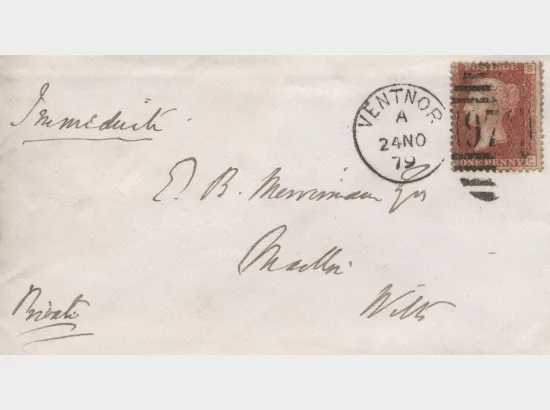 Immediate
VENTNOR
A
24 NO
79
POSTAGE
ONE PENNY
E. B. Merriman Esq
Wilts
Private